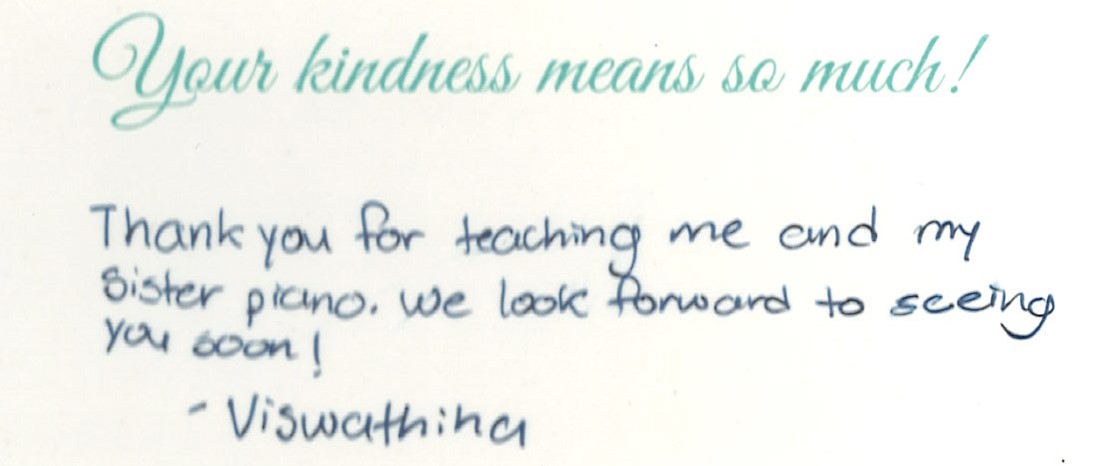 Your kindness means so much!
Thank you for teaching me and my
sister piano. We look forward to seeing
you soon!
- Viswathina